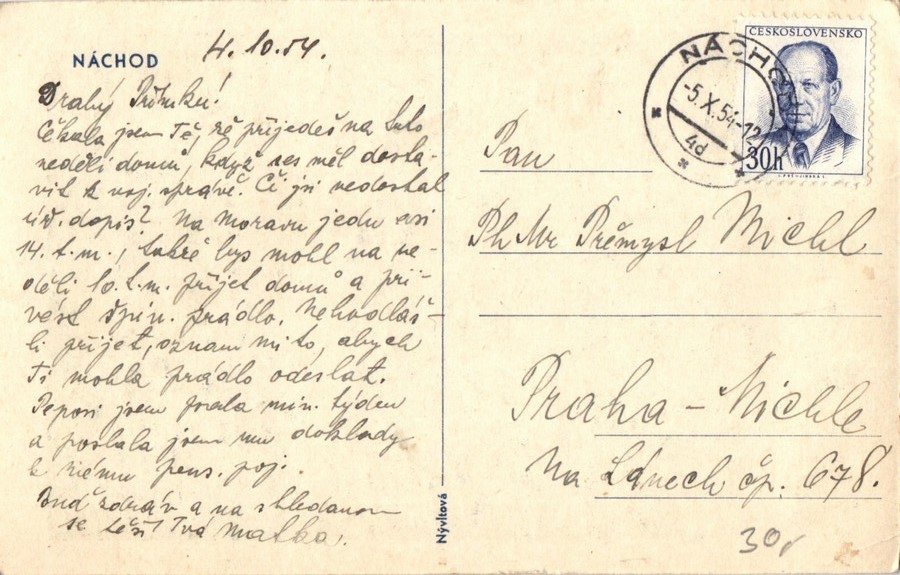 NÁCHOD
4.10.54.
Drahý Přemku!
Čekala jsem Tě, že přijedeš na tuto
neděli domů, když ses měl dosta-
vit k voj. správě. Či jsi nedostal
úř. dopis? Na Moravu jedu asi
14. t.m., takže bys mohl na ne-
děli 10. t.m. přijet domů a při-
vézt špin. prádlo. Nehodláš-
li přijet, oznam mi to, abych
Ti mohla prádlo odeslat.
Peposi jsem prala min. týden
a poslala jsem mu doklady
k pens. poj.
Buď zdráv a na shledanou
se těší Tvá Matka.
Nývltová
ČESKOSLOVENSKO
30h
NÁCHOD
-5.X.54-12
4d
Pan
Ph Mr Přemysl Michl
Praha - Michle
Na Lánech čp. 678.
30,